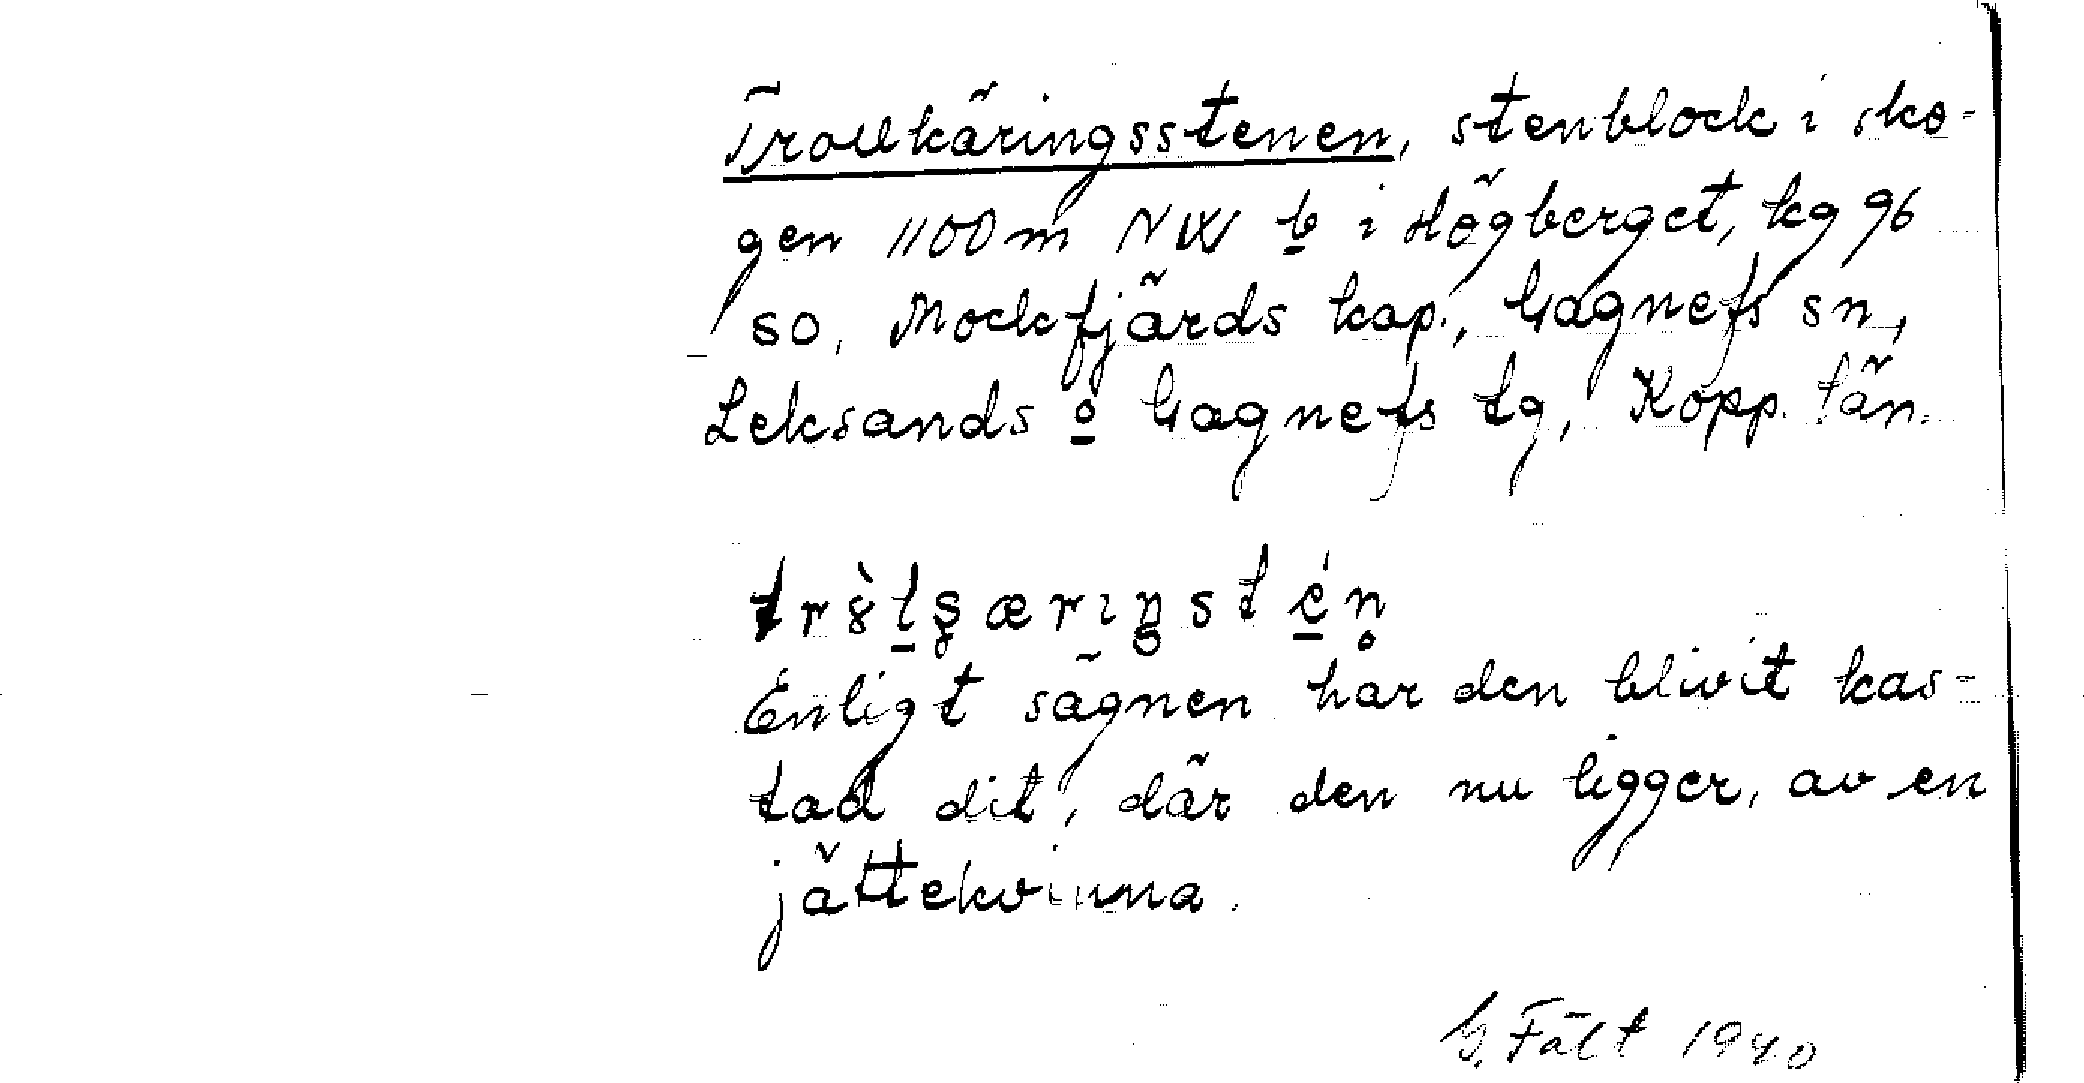 Trollkäringsstenen, stenblock i sko-
gen 1100 m NW b i Högberget, kg 96
so, Mockfjärds kap., Gagnefs sn,
Leksands o Gagnefs tg, Kopp. län.
Enligt sägnen har den blivit kas-
tad dit, där den nu ligger, av en
jättekvinna.
G. Fält 1940